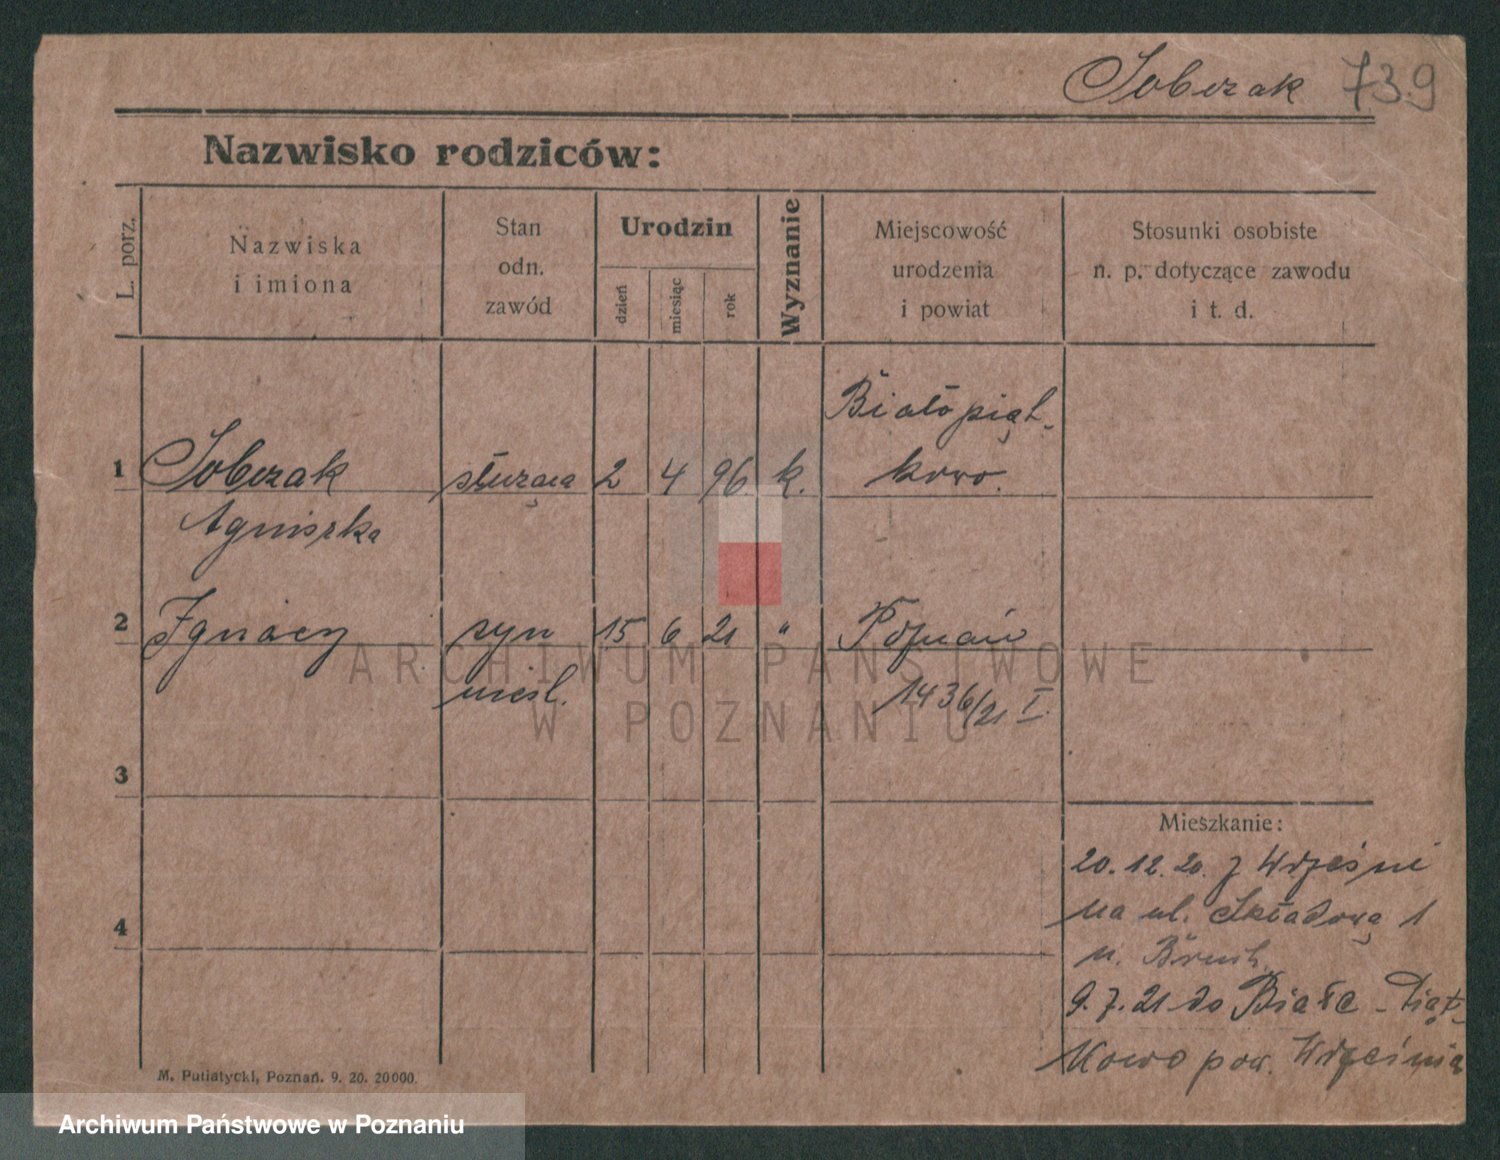 Sobczak 739
Nazwisko rodziców:
L. porz.
Nazwiska
i imiona
Stan
odn.
zawód
Urodzin
dzień
miesiąc
rok
Wyznanie
Miejscowość
urodzenia
i powiat
Stosunki osobiste
n. p. dotyczące zawodu
i t. d.
1 Sobczak służąca 2 4 96 k. Białopiąt-
kowo.
Agniszka
2 Ignacy syn 15 6 21 " Poznań
nieśl. 1436/21 I.
3
4
Mieszkanie:
20.12.20. z Wrześni
na ul. Składową 1
u.
9.7.21 do Białe-Piąt-
kowo pow. Września
M. Putiatycki, Poznań. 9. 20. 20000.
ARCHIWUM PAŃSTWOWE
W POZNANIU
Archiwum Państwowe w Poznaniu